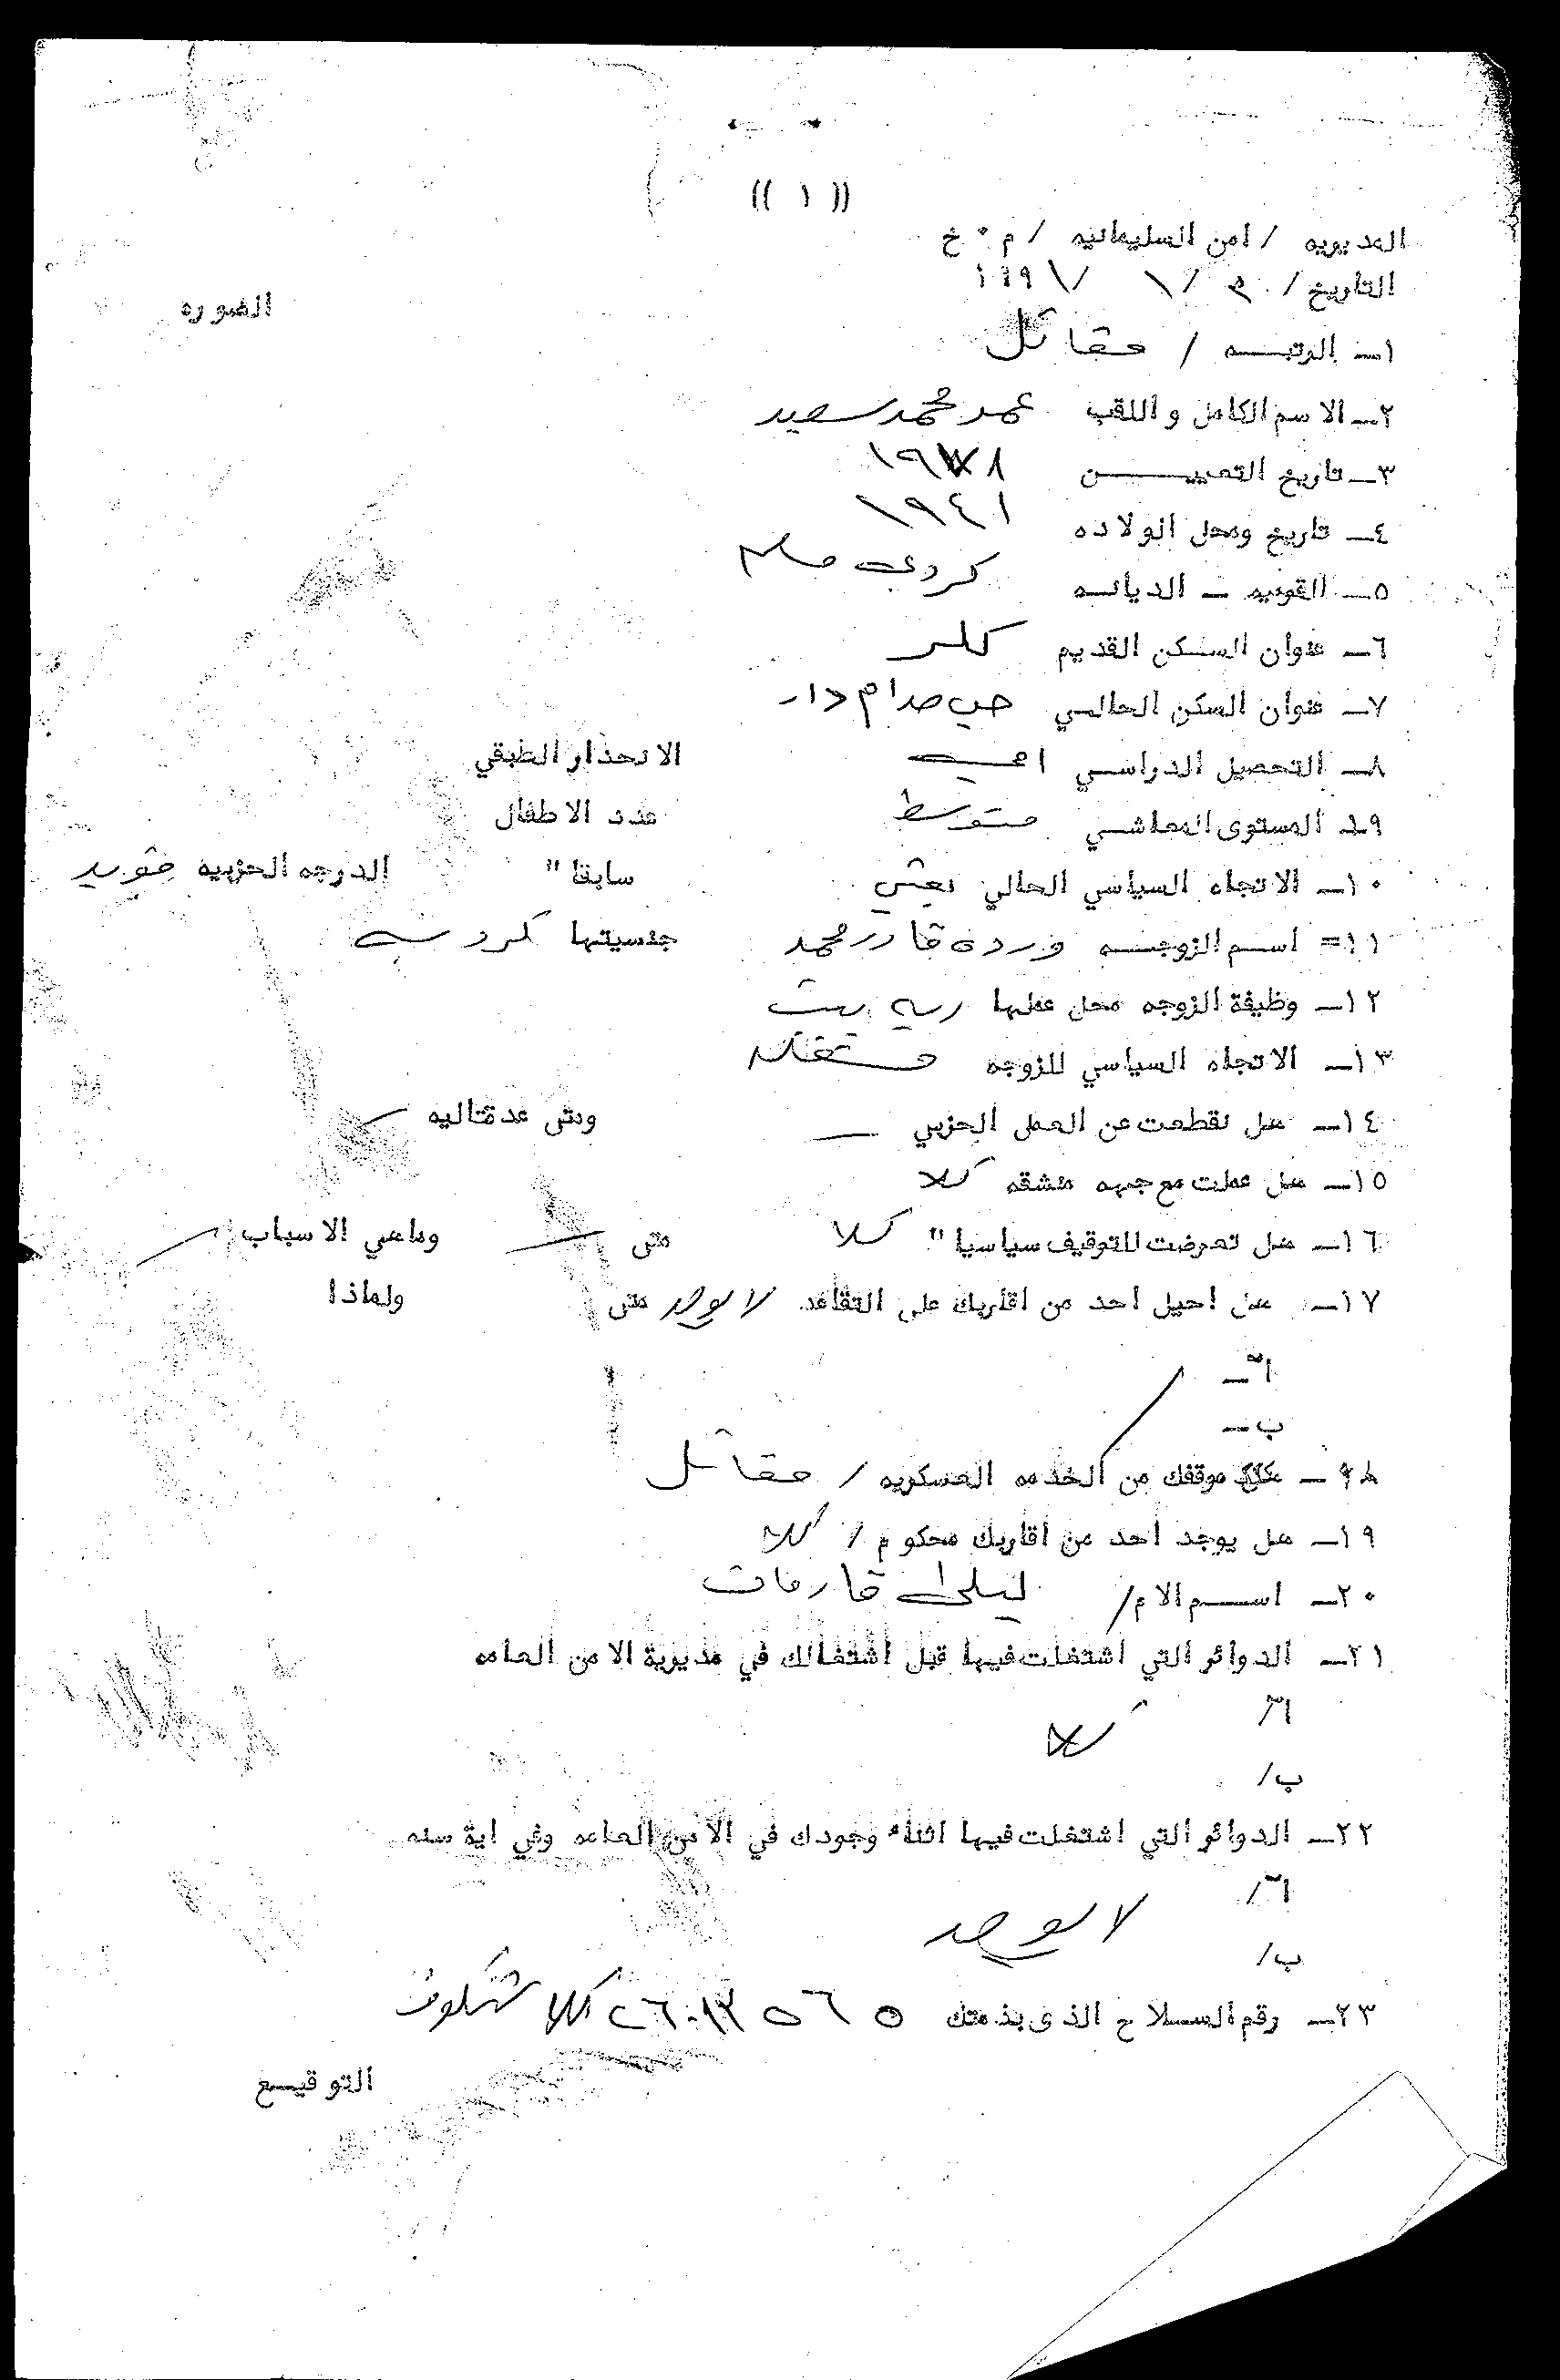 (( ١ ))
المديريه / امن السليمانيه / م ٠ خ
التاريخ / ٣٠ / ١ / ١٩٩١
الصوره
١ـ الرتبـــه / مقاتل
٢ـ الاسم الكامل واللقب عمر محمد سعيد
٣ـ تاريخ التعييـــن
٤ـ تاريخ ومحل الولاده ١٩٤١
٥ـ القوميه ـ الديانــه كردي مسلم
٦ـ عنوان السـكن القديم كلار
٧ـ عنوان السكن الحالـي حي صدام دار
٨ـ التحصيل الدراسـي امي الانحدار الطبقي
٩ـ المستوى المعاشـي متوسط عدد الاطفال
١٠ـ الاتجاه السياسي الحالي بعثي سابقا " الدرجه الحزبيه مؤيد
١١= اسـم الزوجـــه ورده قادر محمد جنسيتها كرديه
١٢ـ وظيفة الزوجه محل عملها ربه بيت
١٣ـ الاتجاه السياسي للزوجه مستقله
١٤ـ هل نقطعت عن العمل الحزبي ـ ومتى عدت اليه
١٥ـ هل عملت مع جبهه منشقه كلا
١٦ـ هل تعرضت للتوقيف سياسيا " كلا متى وماهي الاسباب
١٧ـ هل احيل احد من اقاربك على التقاعد لا يوجد متى ولماذا
آـ
ب ـ
١٨ـ موقفك من الخدمه العسكريه / مقاتل
١٩ـ هل يوجد احد من اقاربك محكوم / كلا
٢٠ـ اســـم الام / ليلى
٢١ـ الدوائر التي اشتغلت فيها قبل اشتغالك في مديرية الامن العامه
آ/
كلا
ب/
٢٢ـ الدوائر التي اشتغلت فيها اثناء وجودك في الامن العامه وفي اية سنه
آ/
لا يوجد
ب/
٢٣ـ رقم السـلاح الذى بذمتك
التوقيـع